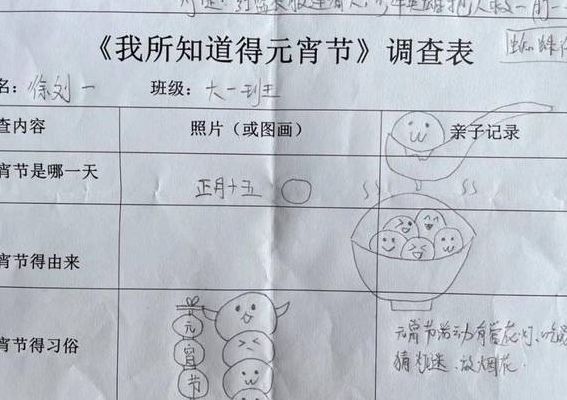 《我所知道得元宵节》调查表
名：徐刘一 班级：大一班
查内容 照片（或图画） 亲子记录
宵节是哪一天 正月十五
宵节得由来
宵节得习俗 元宵节
元宵节活动有赏花灯、吃
猜灯谜、放烟花.